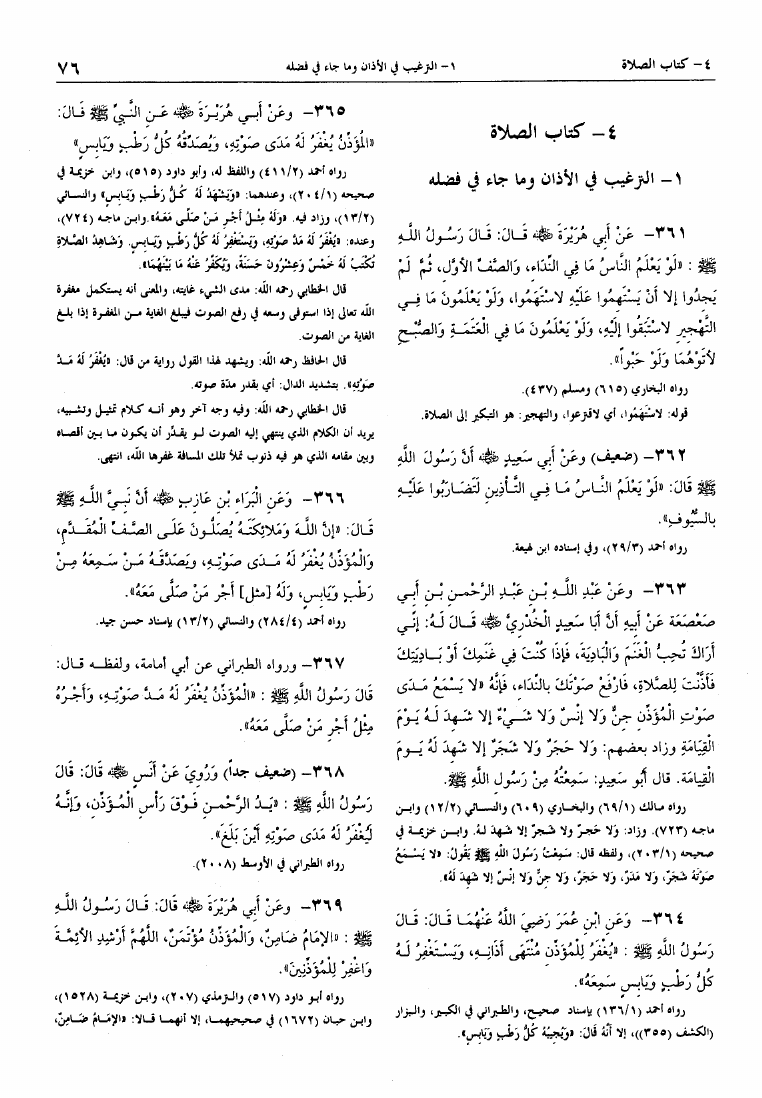 ٤- كتاب الصلاة
١- الترغيب في الأذان وما جاء في فضله
٧٦
٤- كتاب الصلاة
١- الترغيب في الأذان وما جاء في فضله
٣٦١- عَنْ أَبِي هُرَيْرَةَ ﷺ قَـالَ: قَـالَ رَسُـولُ اللَّهِ
ﷺ : «لَوْ يَعْلَمُ النَّاسُ مَا فِي النِّدَاءِ، وَالصَّفِّ الأَوَّلِ، ثُمَّ لَمْ
يَجِدُوا إِلا أَنْ يَسْتَهِمُوا عَلَيْهِ لاسْتَهَمُوا، وَلَوْ يَعْلَمُونَ مَا فِـي
التَّهْجِيرِ لاسْتَبَقُوا إِلَيْهِ، وَلَوْ يَعْلَمُونَ مَا فِي الْعَتَمَـةِ وَالصُّبْـحِ
لأَتَوْهُمَا وَلَوْ حَبْواً».
رواه البخاري (٦١٥) ومسلم (٤٣٧).
قوله: لاستَهَمُوا، أي لاقترعوا، والتهجير: هو التبكير إلى الصلاة.
٣٦٢- (ضعيف) وعَنْ أَبِي سَعِيدٍ ﷺ أَنَّ رَسُولَ اللَّهِ
ﷺ قَالَ: «لَوْ يَعْلَمُ النَّـاسُ مَـا فِـي التَّـأْذِينِ لَتَضَـارَبُوا عَلَيْـهِ
بِالسُّيُوفِ».
رواه أحمد (٢٩/٣)، وفي إسناده ابن لهيعة.
٣٦٣- وعَنْ عَبْدِ اللَّـهِ بْـنِ عَبْـدِ الرَّحْمـنِ بْـنِ أَبِـي
صَعْصَعَةَ عَنْ أَبِيهِ أَنَّ أَبَا سَعِيدٍ الْخُدْرِيَّ ﷺ قَـالَ لَـهُ: إِنِّـي
أَرَاكَ تُحِبُّ الْغَنَمَ وَالْبَادِيَةَ، فَإِذَا كُنْتَ فِي غَنَمِكَ أَوْ بَـادِيَتِكَ
فَأَذَّنْتَ لِلصَّلاةِ، فَارْفَعْ صَوْتَكَ بِالنِّدَاءِ، فَإِنَّهُ «لا يَسْـمَعُ مَـدَى
صَوْتِ الْمُؤَذِّنِ جِنٌّ وَلا إِنْسٌ وَلا شَـيْءٌ إِلا شَـهِدَ لَـهُ يَـوْمَ
الْقِيَامَةِ وزاد بعضهم: وَلا حَجَرٌ وَلا شَجَرٌ إِلا شَهِدَ لَهُ يَـومَ
الْقِيَامَةِ. قال أَبُو سَعِيدٍ: سَمِعْتُهُ مِنْ رَسُولِ اللَّهِ ﷺ.
رواه مـالك (٦٩/١) والبخـاري (٦٠٩) والنسـائي (١٢/٢) وابـن
ماجـه (٧٢٣). وزاد: وَلا حَجـرٌ ولا شـجرٌ إلا شهدَ لـهُ. وابـن خزيمـة في
صحيحه (٢٠٣/١)، ولفظه قال: سَمِعْتُ رَسُولَ اللهِ ﷺ يَقُولُ: «لا يَسْـمَعُ
صَوْتَهُ شَجَرٌ، وَلا مَدَرٌ، وَلا حَجَرٌ، وَلا جِنٌّ وَلا إِنْسٌ إِلا شَهِدَ لَهُ».
٣٦٤- وَعَنِ ابْنِ عُمَرَ رَضِيَ اللَّهُ عَنْهُمَـا قَـالَ: قَـالَ
رَسُولُ اللَّهِ ﷺ : «يُغْفَرُ لِلْمُؤَذِّنِ مُنْتَهَى أَذَانِـهِ، وَيَسْـتَغْفِرُ لَـهُ
كُلُّ رَطْبٍ وَيَابِسٍ سَمِعَهُ».
رواه أحمد (١٣٦/١) بإسناد صحيـح، والطبراني في الكبير، والبزار
(الكشف (٣٥٥))، إلا أَنَّهُ قَالَ: «وَيُجِيبُهُ كُلُّ رَطْبٍ وَيَابِسٍ».
٣٦٥- وعَنْ أَبـي هُرَيْـرَةَ ﷺ عَـنِ النَّبِـيِّ ﷺ قَـالَ:
«الْمُؤَذِّنُ يُغْفَرُ لَهُ مَدَى صَوْتِهِ، وَيُصَدِّقُهُ كُلُّ رَطْبٍ وَيَابِسٍ»
رواه أحمد (٤١١/٢) واللفظ له، وأبو داود (٥١٥)، وابن خزيمـة في
صحيحه (٢٠٤/١)، وعندهما: «وَيَشْهَدُ لَهُ كُـلُّ رَطْبٍ وَيَـابِسٍ» والنسـائي
(١٣/٢)، وزاد فيه. «وَلَهُ مِثْـلُ أَجْرِ مَـنْ صَلَّـى مَعَـهُ».وابـن ماجـه (٧٢٤)،
وعنده: «يُغْفَرُ لَهُ مَدَّ صَوْتِهِ، وَيَسْتَغْفِرُ لَهُ كُلُّ رَطْبٍ وَيَـابِسٍ. وَشَاهِدُ الصَّلاةِ
تُكْتَبُ لَهُ خَمْسٌ وَعِشْرُونَ حَسَنَةً، وَيُكَفَّرُ عَنْهُ مَا بَيْنَهُمَا».
قال الخطابي رحمه اللَّه: مدى الشيء غايته، والمعنى أنه يستكمل مغفرة
الله تعالى إذا استوفى وسعه في رفع الصوت فيبلغ الغاية مـن المغفـرة إذا بلـغ
الغاية من الصوت.
قال الحافظ رحمه اللَّه: ويشهد لهذا القول رواية من قال: «يُغْفَرُ لَهُ مَـدَّ
صَوْتِهِ». بتشديد الدال: أي بقدر مدّة صوته.
قال الخطابي رحمه اللَّه: وفيه وجه آخر وهو أنـه كـلام تمثيـل وتشـبيه،
يريد أن الكلام الذي ينتهي إليه الصوت لـو يقـدّر أن يكـون مـا بـين أقصـاه
وبين مقامه الذي هو فيه ذنوب تملأ تلك المسافة غفرها اللَّه، انتهى.
٣٦٦- وَعَنِ الْبَرَاءِ بْنِ عَازِبٍ ﷺ أَنَّ نَبِـيَّ اللَّـهِ ﷺ
قَـالَ: «إِنَّ اللَّـهَ وَمَلائِكَتَـهُ يُصَلُّـونَ عَلَـى الصَّـفِّ الْمُقَـدَّمِ،
وَالْمُؤَذِّنُ يُغْفَرُ لَهُ مَـدَى صَوْتِـهِ، ويَصَدِّقُـهُ مَـنْ سَـمِعَهُ مِـنْ
رَطْبٍ وَيَابِسٍ، وَلَهُ [مثل] أَجْر مَنْ صَلَّى مَعَهُ».
رواه أحمد (٢٨٤/٤) والنسائي (١٣/٢) بإسناد حسن جيد.
٣٦٧- ورواه الطبراني عن أبي أمامة، ولفظـه قـال:
قَالَ رَسُولُ اللَّهِ ﷺ : «الْمُؤَذِّنُ يُغْفَرُ لَهُ مَـدَّ صَوْتِـهِ، وَأَجْـرُهُ
مِثْلُ أَجْرِ مَنْ صَلَّى مَعَهُ».
٣٦٨- (ضعيف جداً) وَرُوِيَ عَنْ أَنَسٍ ﷺ قَالَ: قَالَ
رَسُولُ اللَّهِ ﷺ : «يَـدُ الرَّحْمـنِ فَـوْقَ رَأْسِ الْمُـؤَذِّنِ، وَإِنَّـهُ
لَيُغْفَرُ لَهُ مَدَى صَوْتِهِ أَيْنَ بَلَغَ».
رواه الطبراني في الأوسط (٢٠٠٨).
٣٦٩- وعَنْ أَبِي هُرَيْرَةَ ﷺ قَالَ: قَـالَ رَسُـولُ اللَّـهِ
ﷺ : «الإِمَامُ ضَامِنٌ، وَالْمُؤَذِّنُ مُؤْتَمَنٌ، اللَّهُمَّ أَرْشِدِ الأَئِمَّـةَ
وَاغْفِرْ لِلْمُؤَذِّنِينَ».
رواه أبـو داود (٥١٧) والـترمذي (٢٠٧)، وابـن خزيمـة (١٥٢٨)،
وابـن حبـان (١٦٧٢) في صحيحيهمـا، إلا أنهمـا قـالا: «الإِمَـامُ ضَـامِنٌ،